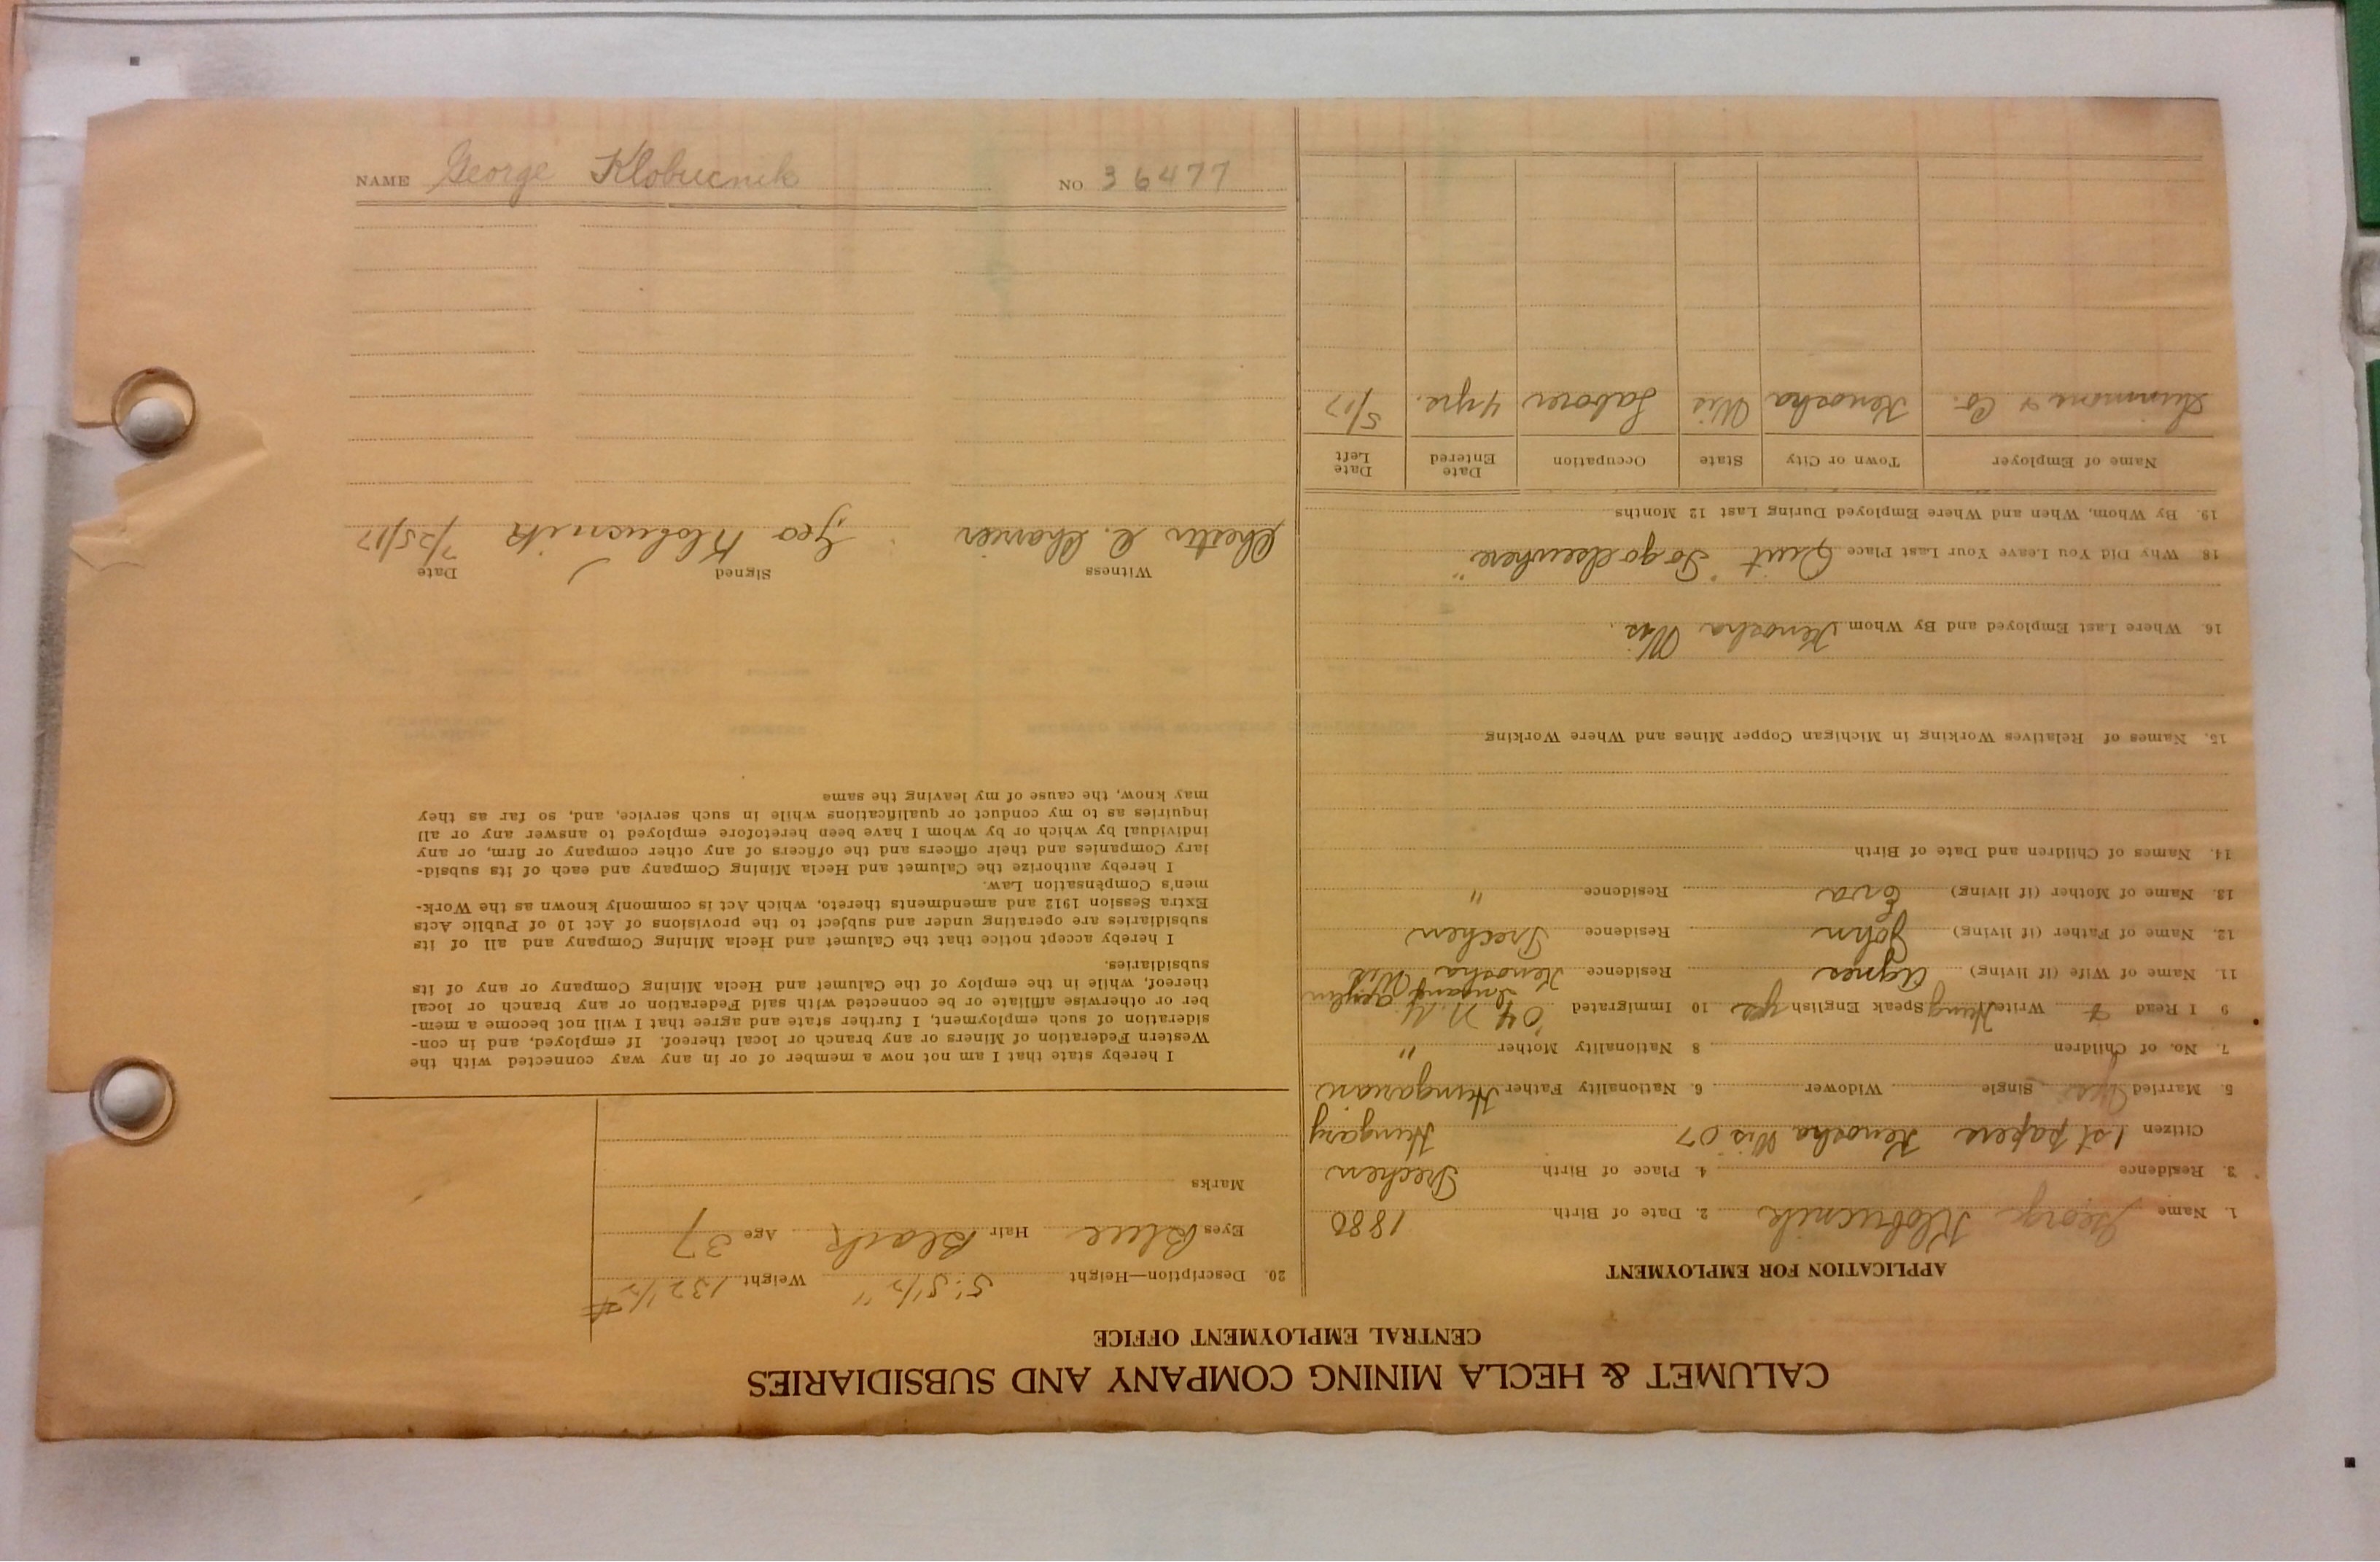 CALUMET & HECLA MINING COMPANY AND SUBSIDIARIES
CENTRAL EMPLOYMENT OFFICE
APPLICATION FOR EMPLOYMENT
1. Name George Klobucnik 2. Date of Birth 1880
3. Residence 4. Place of Birth Trechen
Citizen 1st papers Kenosha Wis 07 Hungary
5. Married Yes Single Widower 6. Nationality Father Hungarian
7. No. of Children 8 Nationality Mother "
9 I Read + Write Hung Speak English yes 10 Immigrated 04 N.Y.
11. Name of Wife (if living) Agnes Residence Kenosha Wis
12. Name of Father (if living) John Residence Trechen
13. Name of Mother (if living) Eva Residence "
14. Names of Children and Date of Birth
15. Names of Relatives Working in Michigan Copper Mines and Where Working
16. Where Last Employed and By Whom Kenosha Wis.
18. Why Did You Leave Your Last Place Quit "To go elsewhere"
19. By Whom, When and Where Employed During Last 12 Months
Name of Employer Town or City State Occupation Date Entered Date Left
Simmons & Co. Kenosha Wis Laborer 4 yrs. 5/17
20. Description—Height 5' 5 1/2" Weight 132 1/2 #
Eyes Blue Hair Black Age 37
Marks
I hereby state that I am not now a member of or in any way connected with the
Western Federation of Miners or any branch or local thereof. If employed, and in con-
sideration of such employment, I further state and agree that I will not become a mem-
ber or otherwise affiliate or be connected with said Federation or any branch or local
thereof, while in the employ of the Calumet and Hecla Mining Company or any of its
subsidiaries.
I hereby accept notice that the Calumet and Hecla Mining Company and all of its
subsidiaries are operating under and subject to the provisions of Act 10 of Public Acts
Extra Session 1912 and amendments thereto, which Act is commonly known as the Work-
men's Compensation Law.
I hereby authorize the Calumet and Hecla Mining Company and each of its subsid-
iary Companies and their officers and the officers of any other company or firm, or any
individual by which or by whom I have been heretofore employed to answer any or all
inquiries as to my conduct or qualifications while in such service, and, so far as they
may know, the cause of my leaving the same
Witness Signed Date
Chester C. Geo Klobucnik 7/25/17
NAME George Klobucnik NO 36477